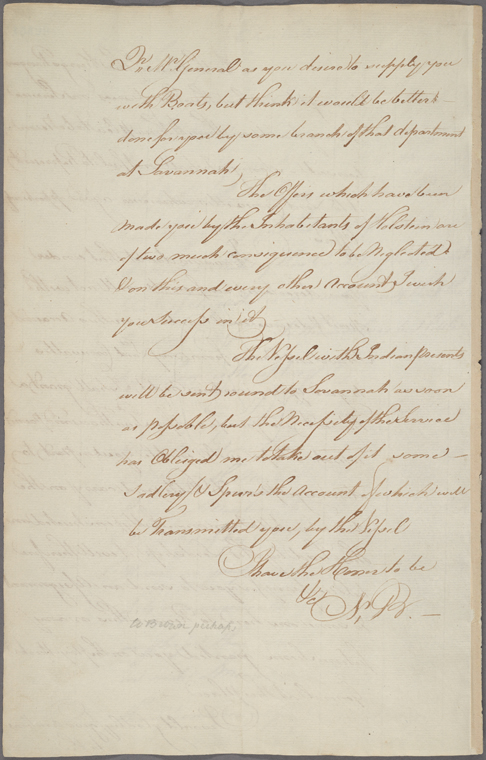 Qr. Mr. General as you desire to supply you
with Boats, but think it would be better
done for you by some branch of that department
at Savannah,
The Offers which have been
made you by the Inhabitants of Holstein are
of two much consequence to be Neglected &
& on this and every other Account, I wish
you Success in it,
The Vessel with Indian presents
will be sent round to Savannah as soon
as possible, but the Necessity of the Service
has Obliged me to take out of it some —
Sadlery, & Spears the Account of which will
be Transmitted you, by the Vessel
I have the Honor to be
&ca.
N, B. —
to Brown perhaps